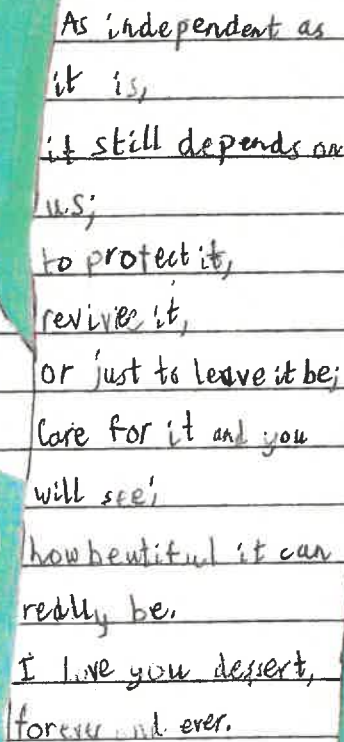 As independent as
it is,
it still depends on
us;
to protect it,
revive it,
or just to leave it be;
Care for it and you
will see;
how beutiful it can
really be.
I love you dessert,
forever and ever.